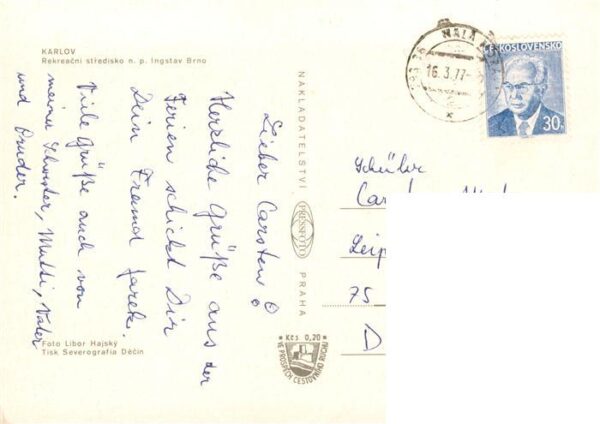 KARLOV
Rekreační středisko n. p. Ingstav Brno
Lieber Carsten!
Herzliche Grüße aus der
Ferien schickt Dir
Dein Freund Jarek.
Viele Grüße auch von
meiner Schwester, Mutti, Vater
und Bruder.
Foto Libor Hajský
Tisk Severografia Děčín
NAKLADATELSTVÍ
PRESSFOTO
PRAHA
Kčs 0,20
VE PROSPĚCH CESTOVNÍHO RUCHU
MALÁ
16.3.77-
ČESKOSLOVENSKO
30
Schüler
Car
Leip
75
D